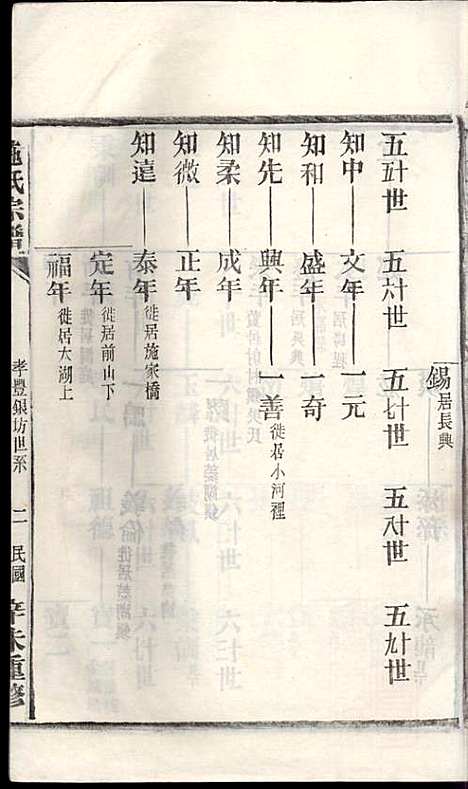 錫居長興
五十五世　五十六世　五十七世　五十八世　五十九世
知中　文年　一元
知和　盛年　一奇
知先　興年　一善徙居小河裡
知柔　成年
知微　正年
知遠　泰年徙居施家橋
定年徙居前山下
福年徙居大湖上
施氏宗譜　孝豐銀坊世系　二　民國辛未重修